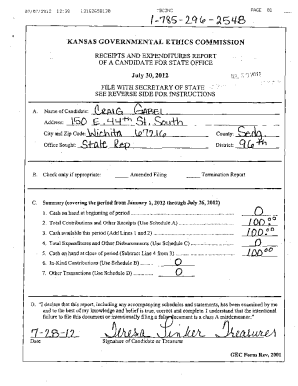 PAGE 01
1-785-296-2548
KANSAS GOVERNMENTAL ETHICS COMMISSION
RECEIPTS AND EXPENDITURES REPORT
OF A CANDIDATE FOR STATE OFFICE
July 30, 2012
FILE WITH SECRETARY OF STATE
SEE REVERSE SIDE FOR INSTRUCTIONS
A. Name of Candidate: CRAIG GABEL
Address: 150 E. 44th St. South
City and Zip Code: Wichita 67216 County: Sedg.
Office Sought: State Rep District: 96th
B. Check only if appropriate: Amended Filing Termination Report
C. Summary (covering the period from January 1, 2012 through July 26, 2012)
1. Cash on hand at beginning of period 0
2. Total Contributions and Other Receipts (Use Schedule A) 100.00
3. Cash available this period (Add Lines 1 and 2) 100.00
4. Total Expenditures and Other Disbursements (Use Schedule C) 0
5. Cash on hand at close of period (Subtract Line 4 from 3) 100.00
6. In-Kind Contributions (Use Schedule B) 0
7. Other Transactions (Use Schedule D) 0
D. "I declare that this report, including any accompanying schedules and statements, has been examined by me
and to the best of my knowledge and belief is true, correct and complete. I understand that the intentional
failure to file this document or intentionally filing a false document is a class A misdemeanor."
7-28-12 Teresa Tinker Treasures
Date Signature of Candidate or Treasurer
GEC Form Rev. 2001